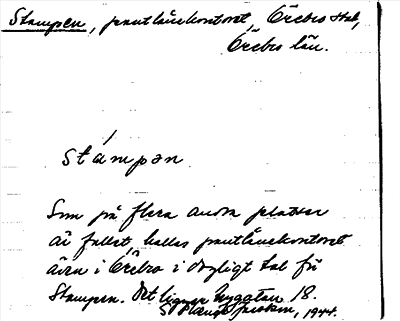 Stampen, pantlånekontoret, Örebro stad,
Örebro län.
stámpən
Som på flera andra platser
är fallet, kallas pantlånekontoret
även i Örebro i dagligt tal för
Stampen. Det ligger Nygatan 18.
1944.